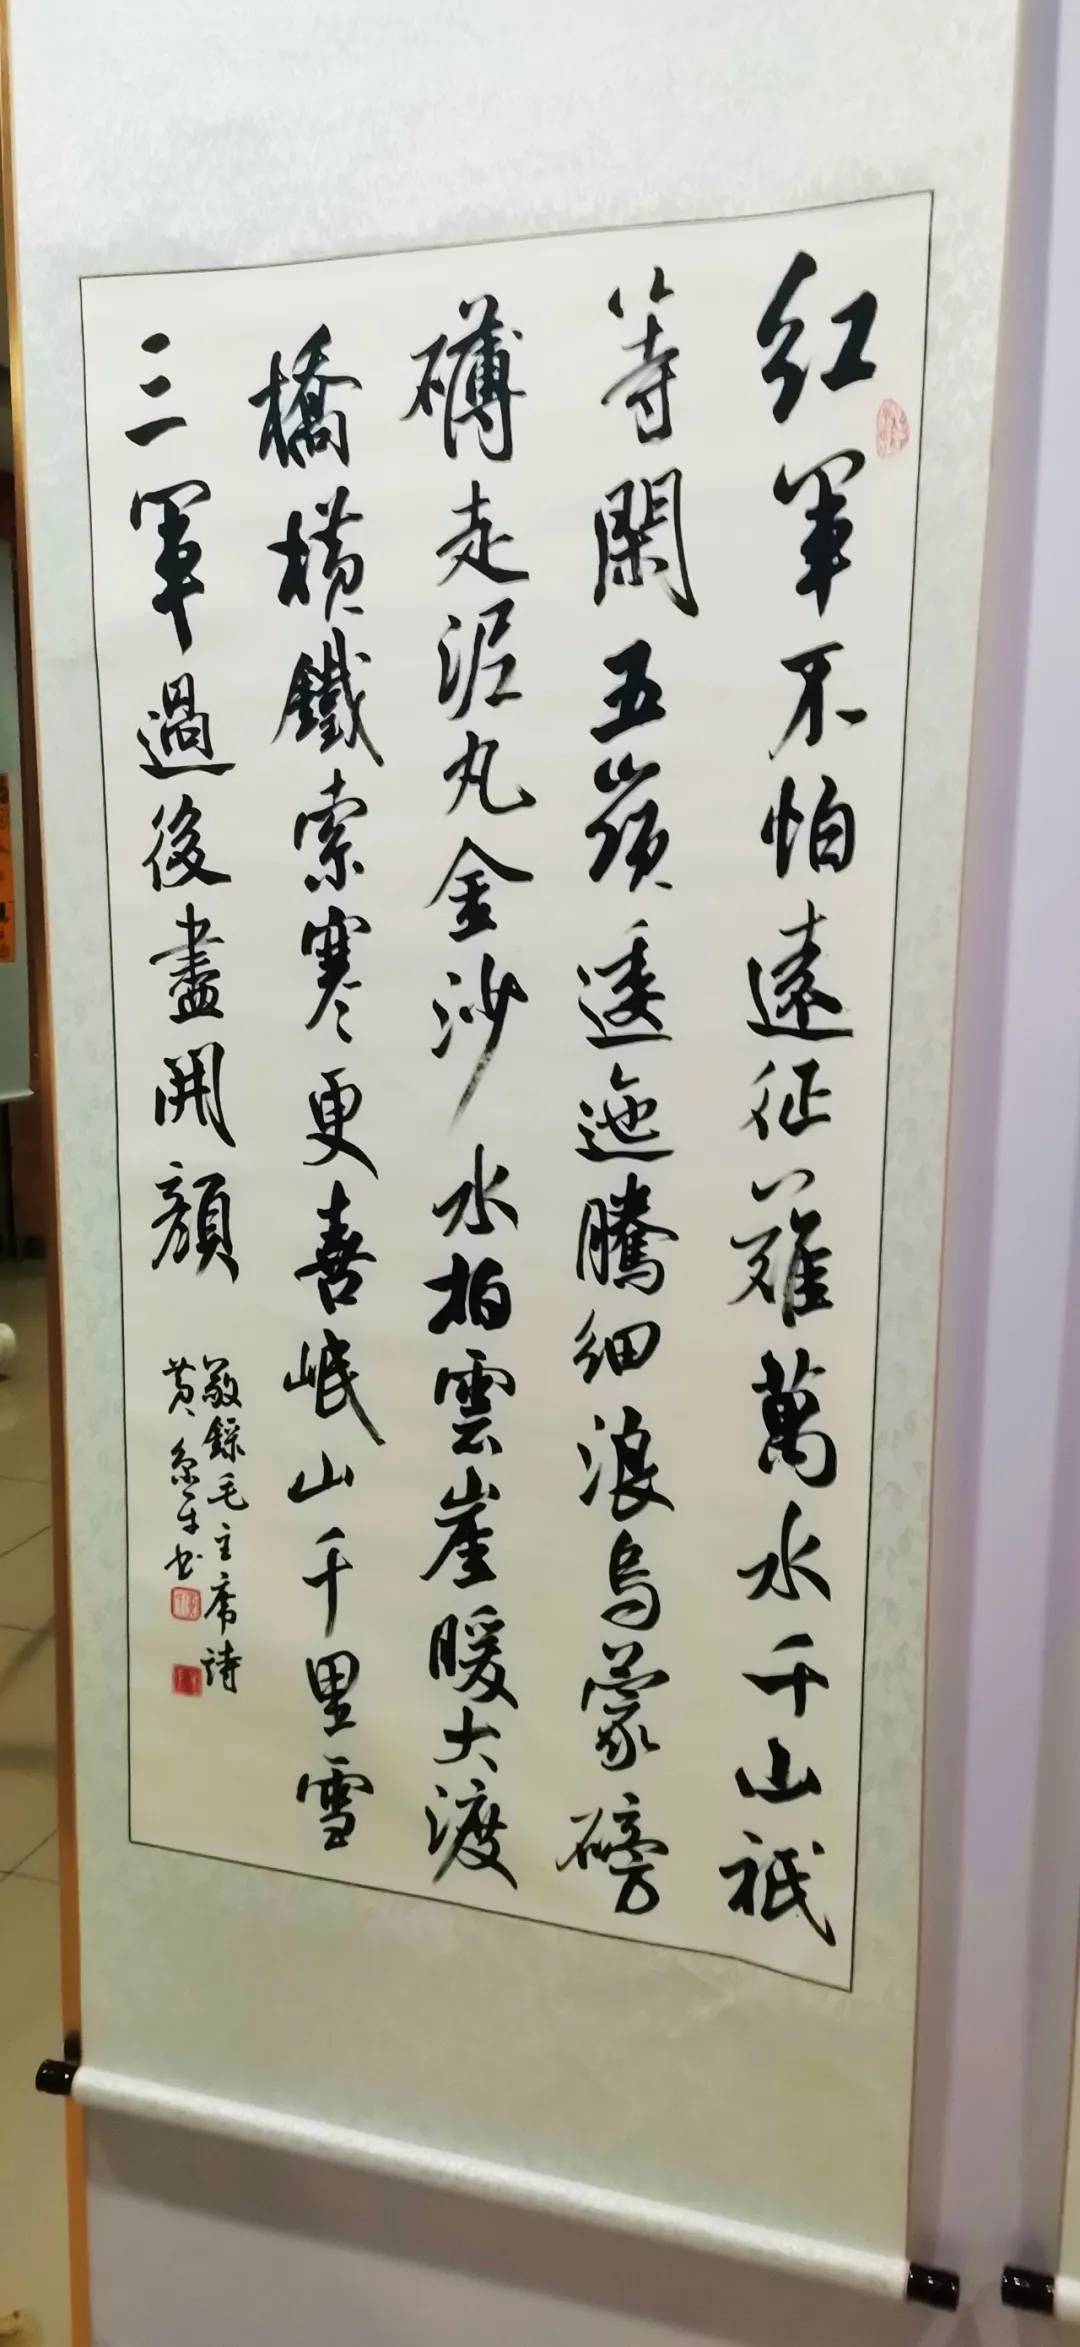 红军不怕遠征難萬水千山祇
等閑五嶺逶迤騰細浪烏蒙磅
礴走泥丸金沙水拍雲崖暖大渡
橋横鐵索寒更喜岷山千里雪
三軍過後盡開顔
敬録毛主席詩
黄
书